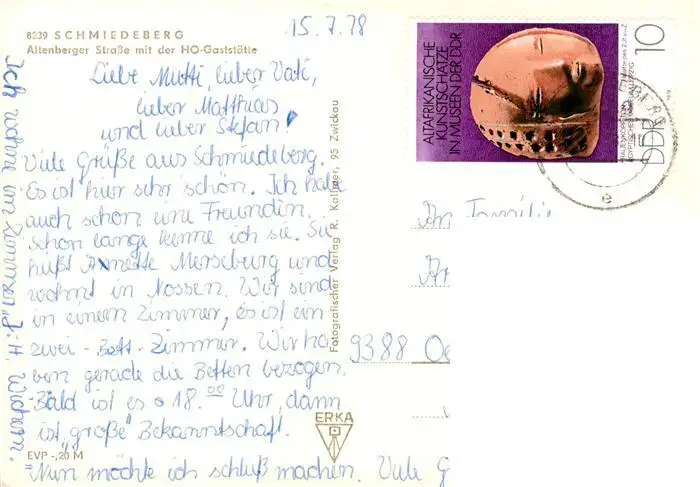 8239 SCHMIEDEBERG
Altenberger Straße mit der HO-Gaststätte
15.7.78
Liebe Mutti, lieber Vati,
lieber Matthias
und lieber Stefan!
Viele Grüße aus Schmiedeberg.
Es ist hier sehr schön. Ich habe
auch schon eine Freundin.
Schon lange kenne ich sie. Sie
heißt Annette Merseburg und
wohnt in Nossen. Wir sind
in einem Zimmer, es ist ein
zwei-Bett-Zimmer. Wir ha-
ben gerade die Betten bezogen.
Bald ist es 18.00 Uhr, dann
ist „große" Bekanntschaft.
Nun möchte ich schluß machen. Viele G
Ich wohne im Zimmer „J. H. Wichern".
EVP -,20 M
ERKA
Fotografischer Verlag R. Kallmer, 95 Zwickau
ALTAFRIKANISCHE
KUNSTSCHÄTZE
IN MUSEEN DER DDR
10
DDR
An Familie
9388 Oe